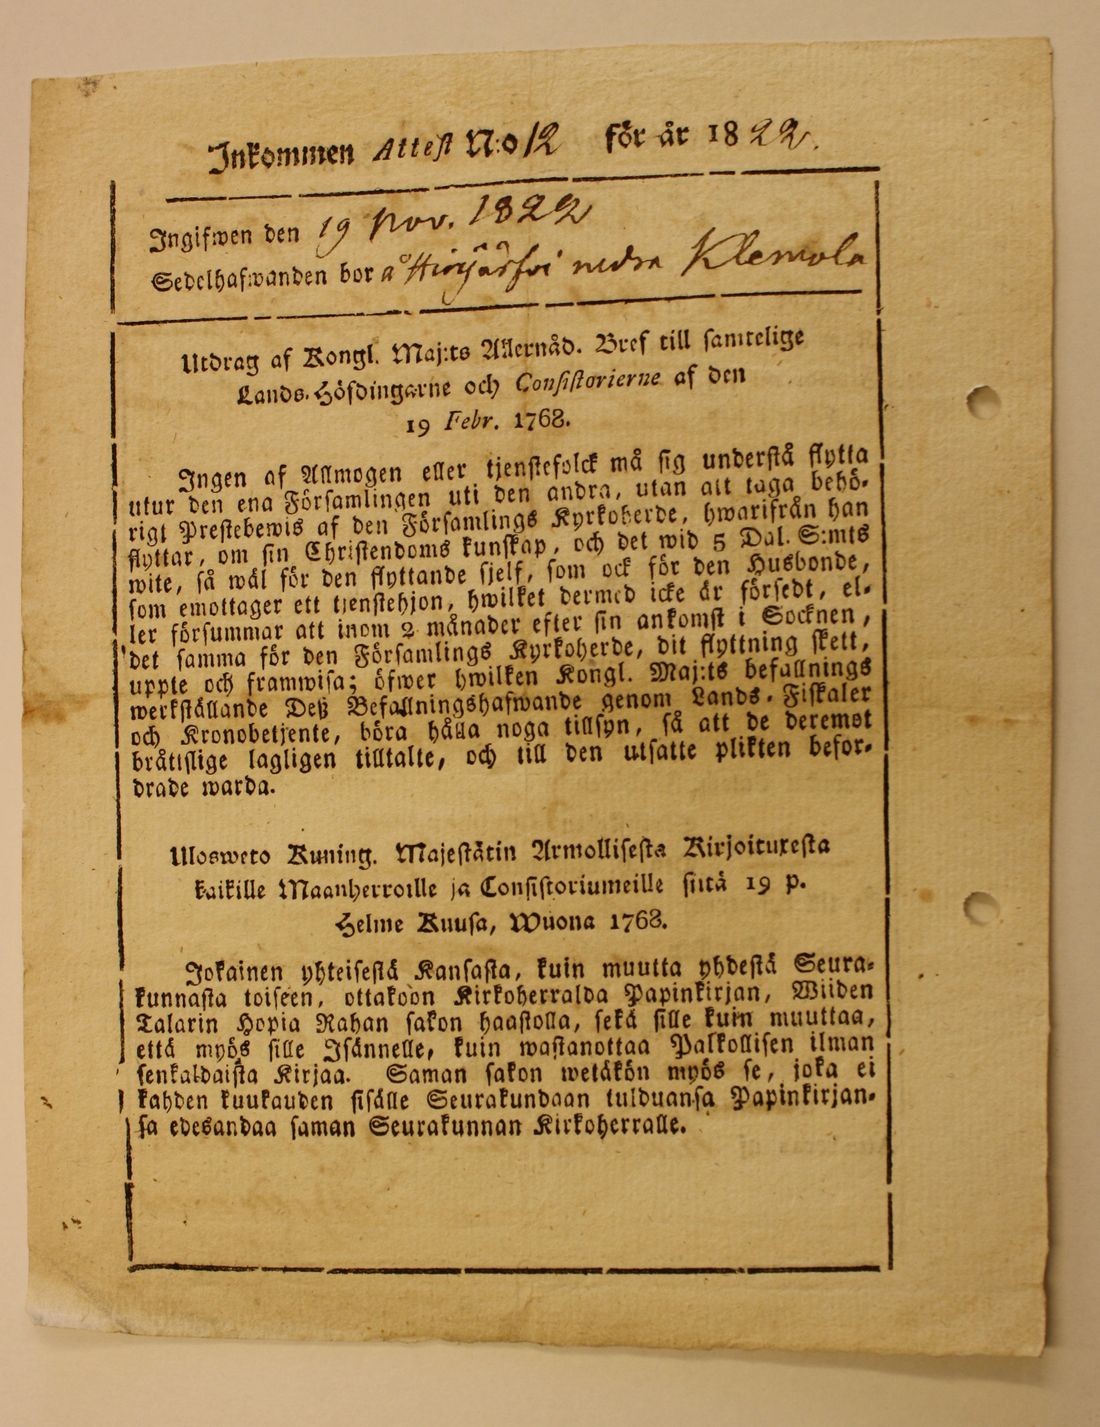 Inkommen Attest N:o 12 för år 1822.
Ingifwen den 19 Nov. 1822
Sedelhafwanden bor å nedra Klemola
Utdrag af Kongl. Maj:ts Allernåd. Bref till samtelige
Lands-Höfdingarne och Consistorierne af den
19 Febr. 1768.
Ingen af Allmogen eller tjenstefolck må sig understå flytta
utur den ena Församlingen uti den andra, utan att taga behö-
rigt Prestebewis af den Församlings Kyrkoherde, hwarifrån han
flyttar, om sin Christendoms kunskap, och det wid 5 Dal. S:mts
wite, så wäl för den flyttande sjelf, som ock för den Husbonde,
som emottager ett tjenstehjon, hwilket dermed icke är försedt, el-
ler försummar att inom 2 månader efter sin ankomst i Socknen,
det samma för den Församlings Kyrkoherde, dit flyttning skett,
uppte och framwisa; öfwer hwilken Kongl. Maj:ts befallnings
werkställande Deß Befallningshafwande genom Lands-Fiskaler
och Kronobetjente, böra hålla noga tillsyn, så att de deremot
bråttslige lagligen tilltalte, och till den utsatte plikten befor-
drade warda.
Ulosweto Kuning. Majestätin Armollisesta Kirjoituxesta
kaikille Maanherroille ja Consistoriumeille siitä 19 p.
Helme Kuusa, Wuona 1768.
Jokainen yhteisestä Kansasta, kuin muutta yhdestä Seura-
kunnasta toiseen, ottakoon Kirkoherralda Papinkirjan, Wiiden
Talarin Hopia Rahan sakon haastolla, sekä sille kuin muuttaa,
että myös sille Isännelle, kuin wastanottaa Palkollisen ilman
senkaldaista Kirjaa. Saman sakon wetäkön myös se, joka ei
kahden kuukauden sisälle Seurakundaan tulduansa Papinkirjan-
sa edesandaa saman Seurakunnan Kirkoherralle.